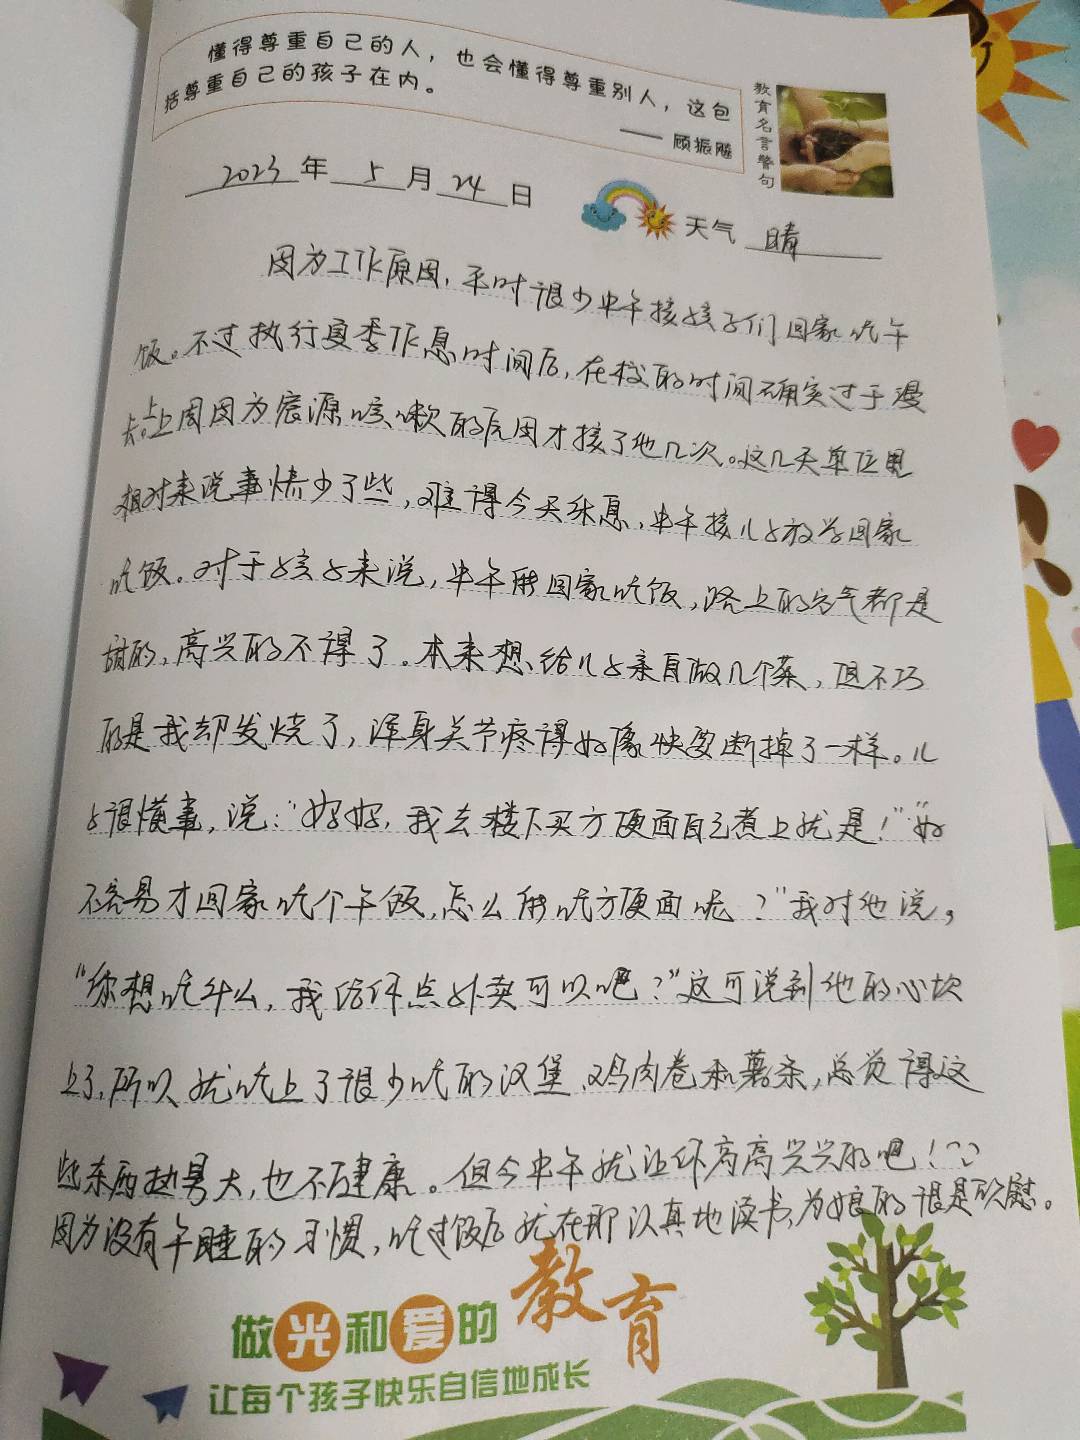 懂得尊重自己的人，也会懂得尊重别人，这包
括尊重自己的孩子在内。
—— 顾振飚
教育名言警句
2023年5月24日
天气 晴
因为工作原因，平时很少中午接孩子们回家吃午
饭。不过执行夏季作息时间后，在校的时间确实过于漫
长。上周因为宸源咳嗽的原因才接了他几次。这几天单位里
相对来说事情少了些，难得今天休息，中午接儿子放学回家
吃饭。对于孩子来说，中午能回家吃饭，路上的空气都是
甜的，高兴的不得了。本来想给儿子亲自做几个菜，但不巧
的是我却发烧了，浑身关节疼得好像快要断掉了一样。儿
子很懂事，说：“妈妈，我去楼下买方便面自己煮上就是！”“好
不容易才回家吃个午饭，怎么能吃方便面呢？”我对他说，
“你想吃什么，我给你点外卖可以吧？”这可说到他的心坎
上了，所以就吃上了很少吃的汉堡、鸡肉卷和薯条，总觉得这
些东西热量大，也不健康。但今中午就让你高高兴兴的吧！
因为没有午睡的习惯，吃过饭后就在那认真地读书，为娘的很是欣慰。
做光和爱的教育
让每个孩子快乐自信地成长